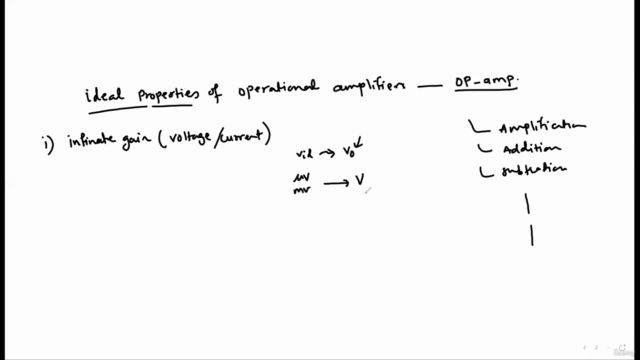 ideal properties of operational amplifier — OP-amp.
i) infinate gain (voltage/current)
vid → v0
uv
mv → V
Amplification
Addition
subtration